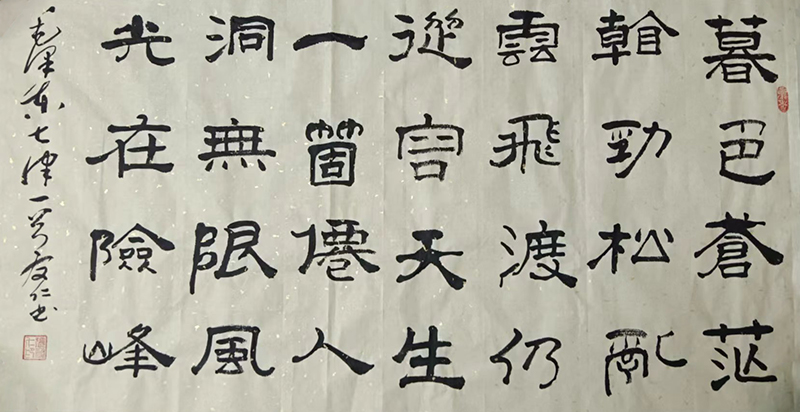 暮色蒼茫
看勁松亂
雲飛渡仍
從容天生
一箇僊人
洞無限風
光在險峰
毛泽东七律一首友仁书